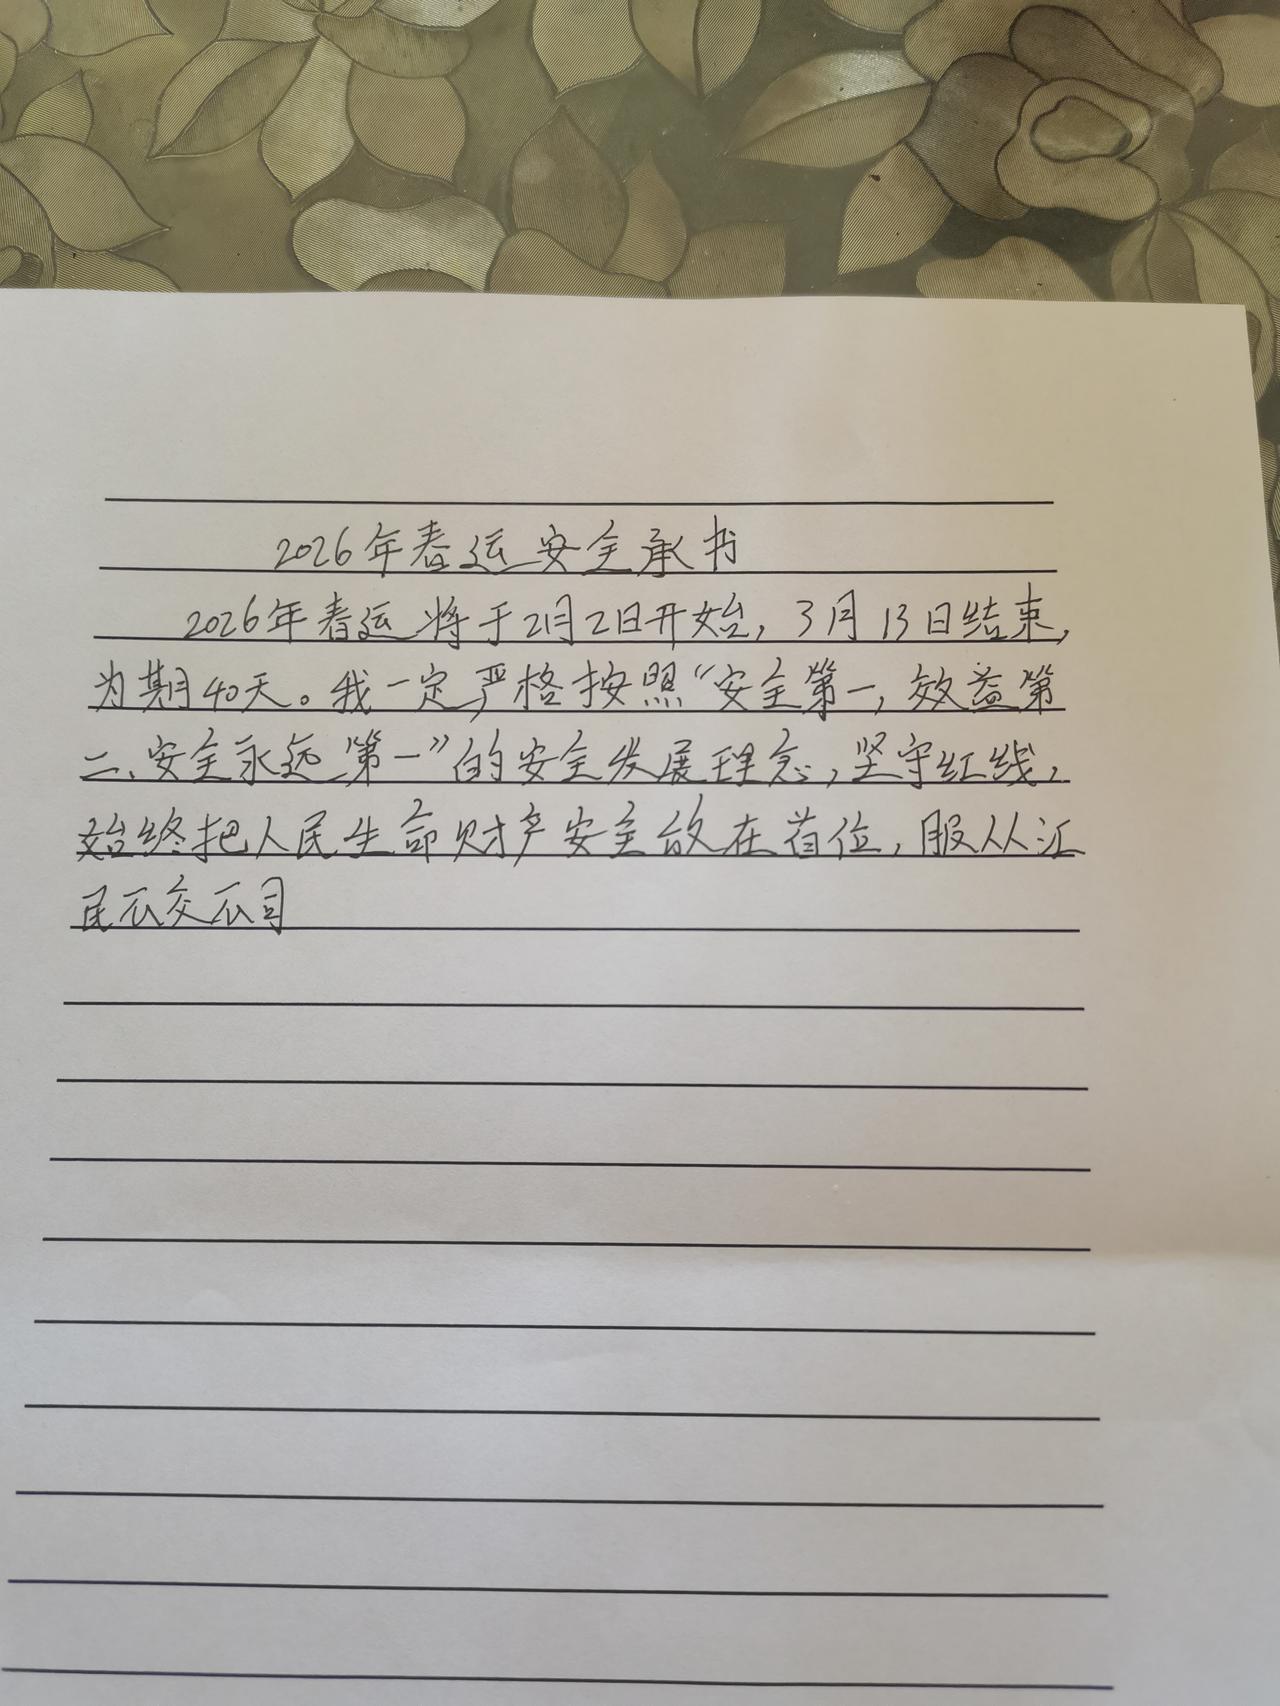 2026年春运安全承书
2026年春运将于2月2日开始，3月13日结束，
为期40天。我一定严格按照“安全第一，效益第
二、安全永远第一”的安全发展理念，坚守红线，
始终把人民生命财产安全放在首位，服从江
民公交公司